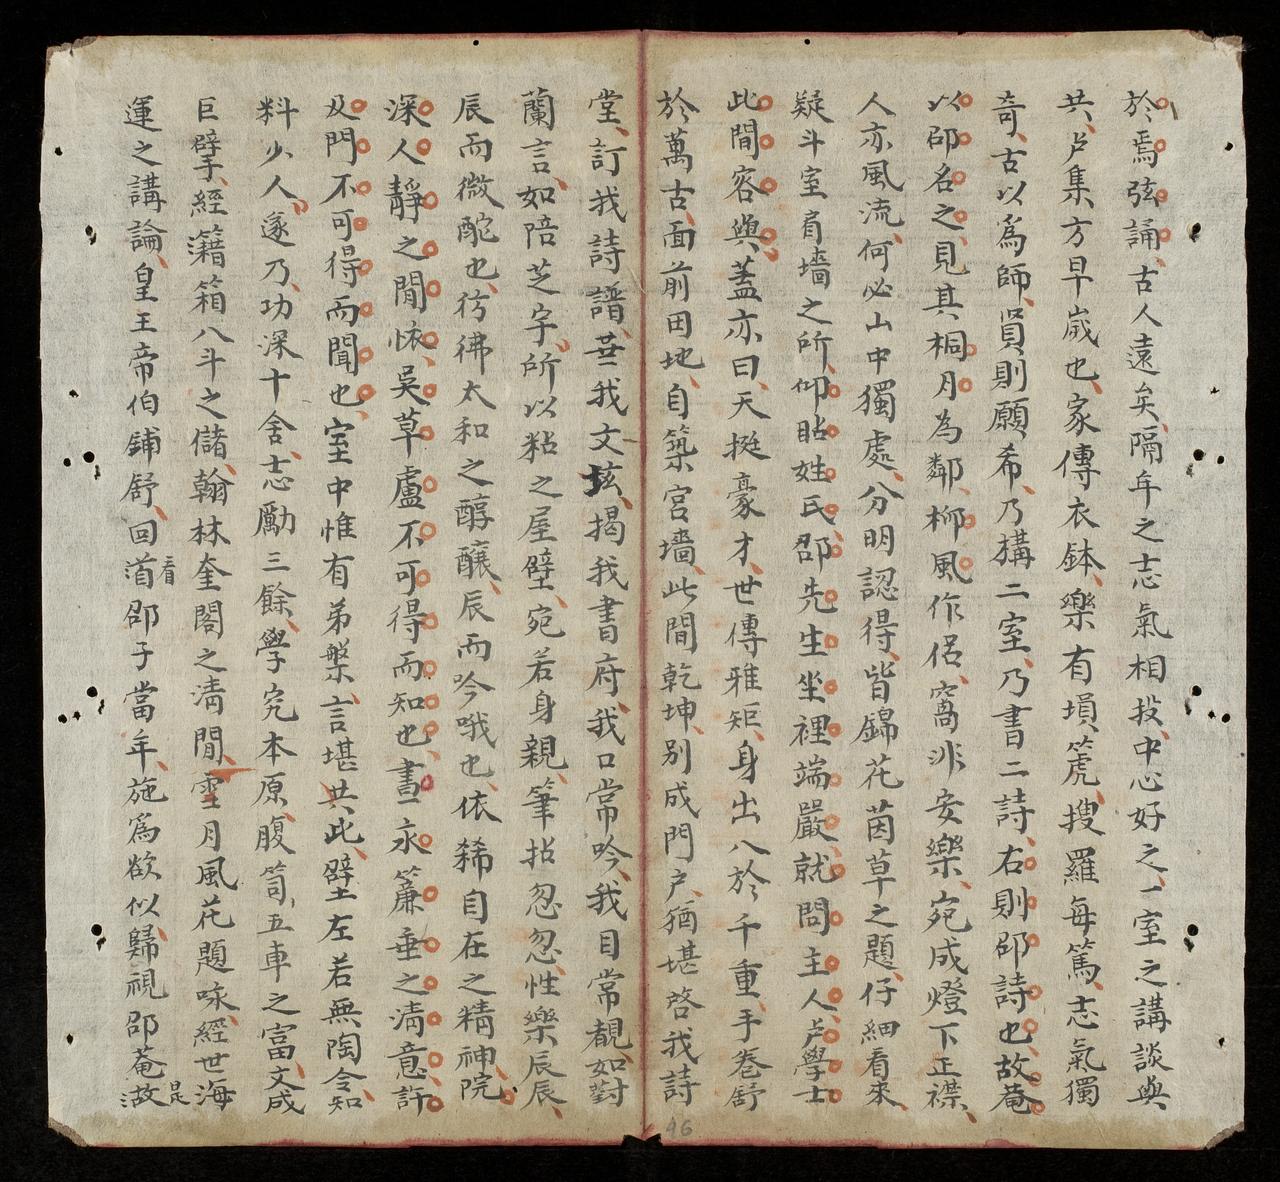 於焉弦誦古人遠矣隔年之志氣相投中心好之一室之講談與
共卢集方早歲也家傳衣鉢樂有塤箎搜羅每篤志氣獨
奇古以爲師員則願希乃構二室乃書二詩右則邵詩也故菴
以邵名之見其桐月為鄰柳風作侶窩非安樂宛成燈下正襟
人亦風流何必山中獨處分明認得皆錦花茵草之題仔細看來
疑斗室肩墻之所仰瞻姓氏邵先生坐裡端嚴就問主人卢學士
此間容與蓋亦曰天挺豪才世傳雅矩身出八於千重手卷舒
於萬古面前田地自築宮墻此間乾坤別成門户猶堪啓我詩
堂訂我詩譜芸我文垓揭我書府我口常吟我目常覩如對
蘭言如陪芝宇所以粘之屋壁宛若身親筆拈忽忽性樂辰辰
辰而微酡也彷彿太和之醇醲辰而吟哦也依稀自在之精神院
深人靜之閒恢吳草盧不可得而知也晝永簾垂之清意許
及門不可得而聞也室中惟有弟槃言堪共此壁左若無陶令知
料少人遂乃功深十舍志勵三餘學究本原腹笥五車之富文成
巨擘經籍箱八斗之儲翰林奎閣之清閒雪月風花題咏經世海
運之講論皇王帝伯鋪舒回首看邵子當年施爲欲似歸視邵菴故是
96